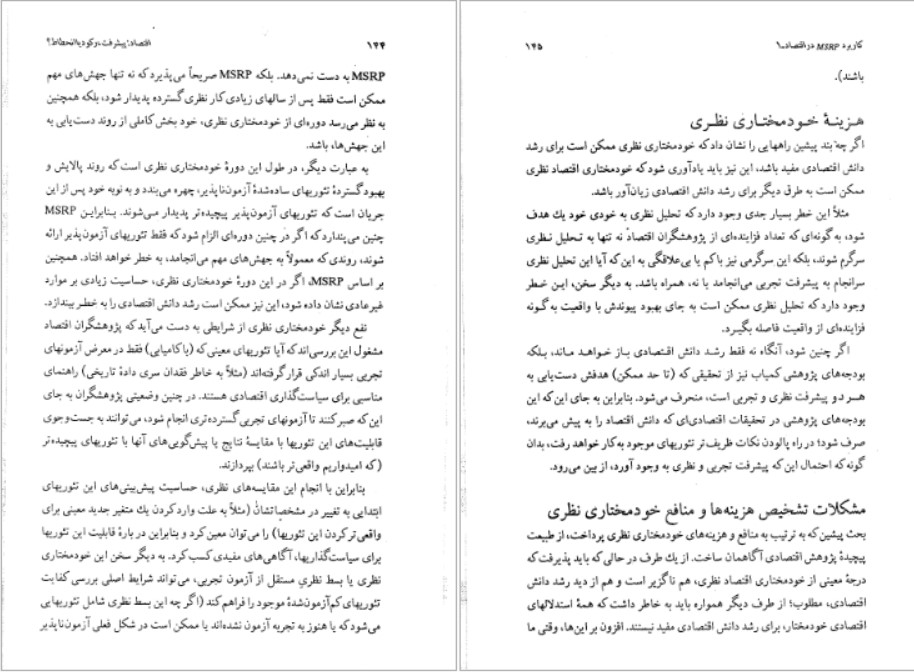 ۱۴۴
اقتصاد: پیشرفت، رکود یا انحطاط؟
MSRP به دست نمی‌دهد. بلکه MSRP صریحاً می‌پذیرد که نه تنها جهش‌های مهم
ممکن است فقط پس از سالهای زیادی کار نظری گسترده پدیدار شود، بلکه همچنین
به نظر می‌رسد دوره‌ای از خودمختاری نظری، خود بخش کاملی از روند دست‌یابی به
این جهش‌ها، باشد.
به عبارت دیگر، در طول این دورهٔ خودمختاری نظری است که روند پالایش و
بهبود گستردهٔ تئوریهای ساده‌شدهٔ آزمون‌ناپذیر، چهره می‌بندد و به نوبه خود پس از این
جریان است که تئوریهای آزمون‌پذیر پیچیده‌تر پدیدار می‌شوند. بنابراین MSRP
چنین می‌پندارد که اگر در چنین دوره‌ای الزام شود که فقط تئوریهای آزمون‌پذیر ارائه
شوند، روندی که معمولاً به جهش‌های مهم می‌انجامد، به خطر خواهد افتاد. همچنین
بر اساس MSRP، اگر در این دورهٔ خودمختاری نظری، حساسیت زیادی بر موارد
غیرعادی نشان داده شود، این نیز ممکن است رشد دانش اقتصادی را به خطر بیندازد.
نفع دیگر خودمختاری نظری از شرایطی به دست می‌آید که پژوهشگران اقتصاد
مشغول این بررسی‌اند که آیا تئوریهای معینی که (با کامیابی) فقط در معرض آزمونهای
تجربی بسیار اندکی قرار گرفته‌اند (مثلاً به خاطر فقدان سری دادهٔ تاریخی) راهنمای
مناسبی برای سیاست‌گذاری اقتصادی هستند. در چنین وضعیتی پژوهشگران به جای
این که صبر کنند تا آزمونهای تجربی گسترده‌تری انجام شود، می‌توانند به جست‌وجوی
قابلیت‌های این تئوریها با مقایسهٔ نتایج یا پیش‌گویی‌های آنها با تئوریهای پیچیده‌تر
(که امیدواریم واقعی‌تر باشند) بپردازند.
بنابراین با انجام این مقایسه‌های نظری، حساسیت پیش‌بینی‌های این تئوریهای
ابتدایی به تغییر در مشخصاتشان (مثلاً به علت وارد کردن یك متغیر جدید معنی برای
واقعی‌تر کردن این تئوریها) را می‌توان معین کرد و بنابراین در بارهٔ قابلیت این تئوریها
برای سیاست‌گذاریها، آگاهی‌های مفیدی کسب کرد. به دیگر سخن این خودمختاری
نظری یا بسط نظریِ مستقل از آزمون تجربی، می‌تواند شرایط اصلی بررسی کفایت
تئوریهای کم‌آزمون‌شدهٔ موجود را فراهم کند (اگر چه این بسط نظری شامل تئوریهایی
می‌شود که یا هنوز به تجربه آزمون نشده‌اند یا ممکن است در شکل فعلی آزمون‌ناپذیر
کاربرد MSRP در اقتصاد ـ ۱
۱۴۵
باشند).
هزینهٔ خودمختاری نظری
اگر چه بند پیشین راههایی را نشان داد که خودمختاری نظری ممکن است برای رشد
دانش اقتصادی مفید باشد، این نیز باید یادآوری شود که خودمختاری اقتصاد نظری
ممکن است به طرق دیگر برای رشد دانش اقتصادی زیان‌آور باشد.
مثلاً این خطر بسیار جدی وجود دارد که تحلیل نظری به خودی خود یك هدف
شود، به گونه‌ای که تعداد فزاینده‌ای از پژوهشگران اقتصاد نه تنها به تحلیل نظری
سرگرم شوند، بلکه این سرگرمی نیز با کم یا بی‌علاقگی به این که آیا این تحلیل نظری
سرانجام به پیشرفت تجربی می‌انجامد یا نه، همراه باشد. به دیگر سخن، این خطر
وجود دارد که تحلیل نظری ممکن است به جای بهبود پیوندش با واقعیت به گونه
فزاینده‌ای از واقعیت فاصله بگیرد.
اگر چنین شود، آنگاه نه فقط رشد دانش اقتصادی باز خواهد ماند، بلکه
بودجه‌های پژوهشی کمیاب نیز از تحقیقی که (تا حد ممکن) هدفش دست‌یابی به
هر دو پیشرفت نظری و تجربی است، منحرف می‌شود. بنابراین به جای این که این
بودجه‌های پژوهشی در تحقیقات اقتصادی‌ای که دانش اقتصاد را به پیش می‌برند،
صرف شود؛ در راه پالودن نکات ظریف‌تر تئوریهای موجود به کار خواهد رفت، بدان
گونه که احتمال این که پیشرفت تجربی و نظری به وجود آورد، از بین می‌رود.
مشکلات تشخیص هزینه‌ها و منافع خودمختاری نظری
بحث پیشین که به ترتیب به منافع و هزینه‌های خودمختاری نظری پرداخت، از طبیعت
پیچیدهٔ پژوهش اقتصادی آگاهمان ساخت. از یك طرف در حالی که باید پذیرفت که
درجهٔ معینی از خودمختاری اقتصاد نظری، هم ناگزیر است و هم از دید رشد دانش
اقتصادی، مطلوب؛ از طرف دیگر همواره باید به خاطر داشت که همهٔ استدلالهای
اقتصادی خودمختار، برای رشد دانش اقتصادی مفید نیستند. افزون بر این‌ها، وقتی ما